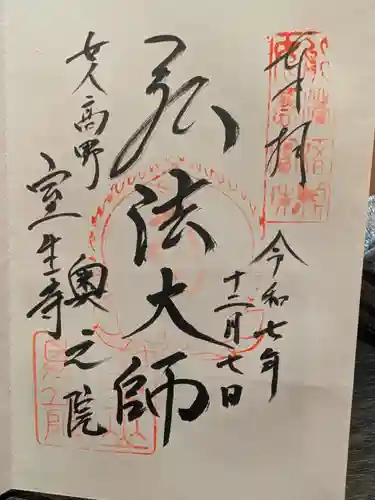 奉拝
令和七年
十二月七日
弘法大師
女人高野
室生寺
奥之院